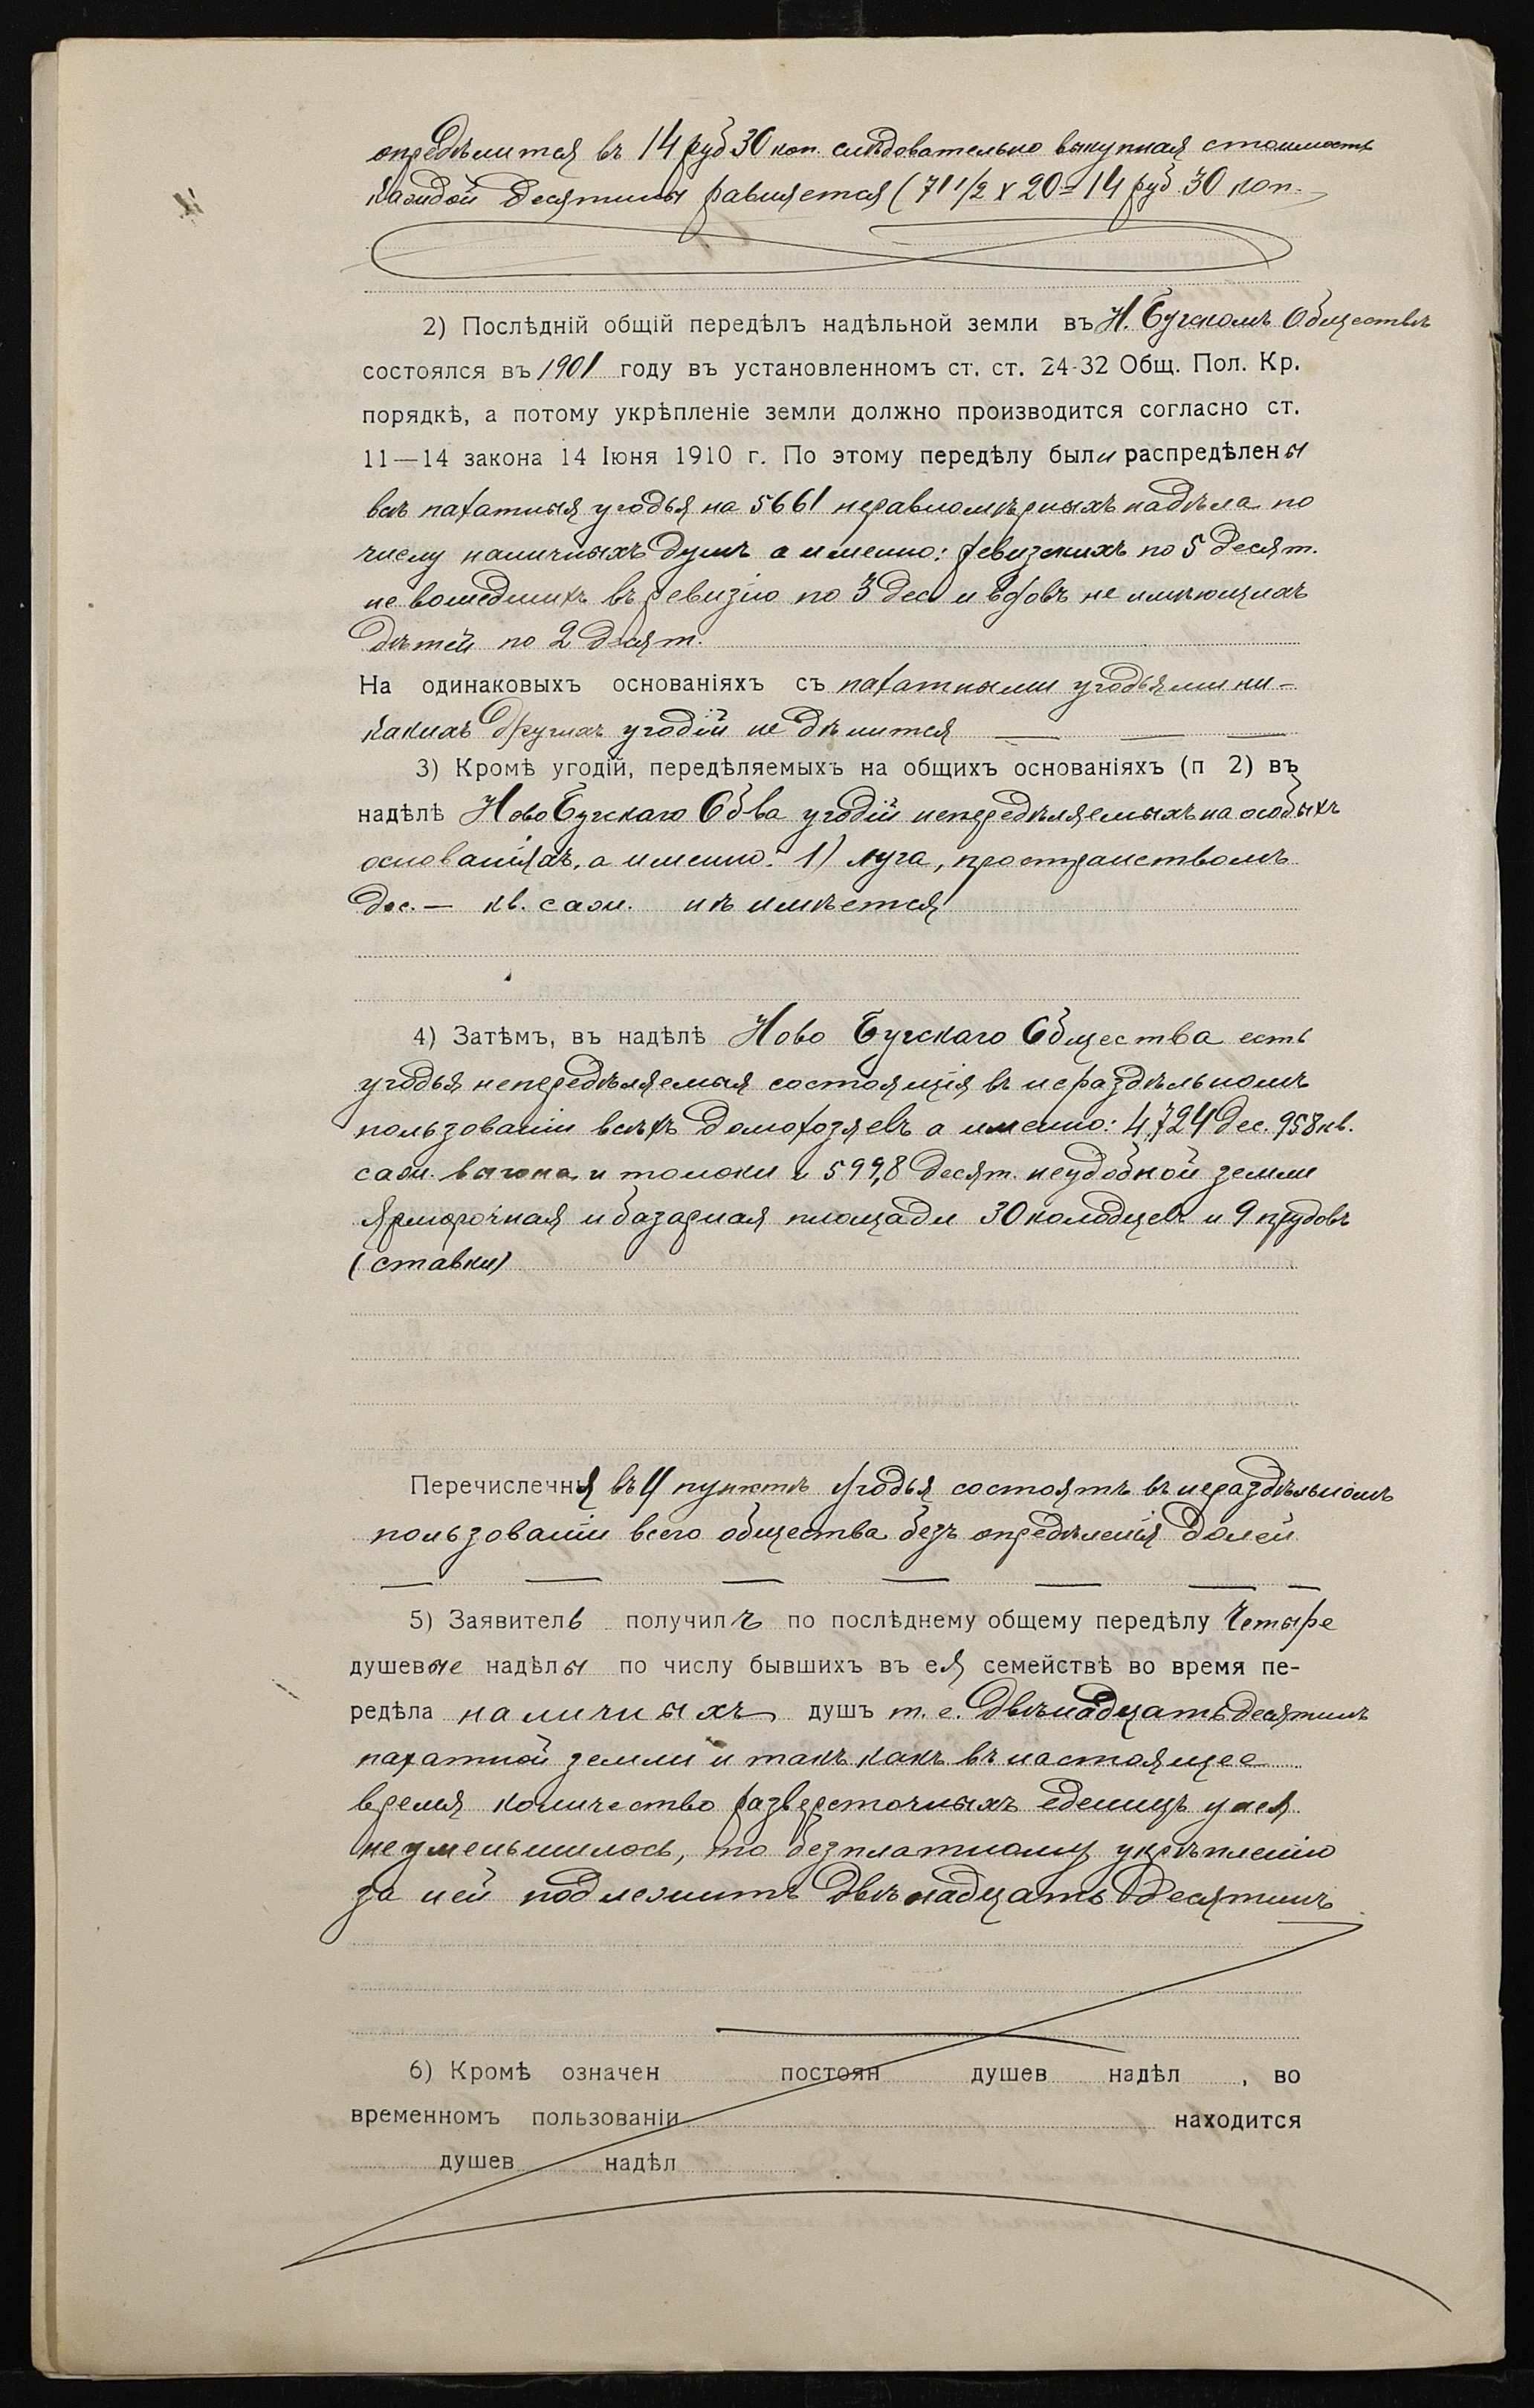 опредѣлится въ 14 руб 30 коп. слѣдовательно выкупная стоимость
каждой десятины равняется (71 1/2 х 20 = 14 руб 30 коп.
2) Послѣдній общій передѣлъ надѣльной земли въ Н. Бугскомъ Обществѣ
состоялся въ 1901 году въ установленномъ ст. ст. 24-32 Общ. Пол. Кр.
порядкѣ, а потому укрѣпленіе земли должно производится согласно ст.
11—14 закона 14 Іюня 1910 г. По этому передѣлу были распредѣлены
всѣ пахатныя угодья на 5661 неравномѣрныхъ надѣла по
числу наличныхъ душъ а именно: ревизскихъ по 5 десят.
не вошедшихъ въ ревизію по 3 дес и вдовъ не имѣющихъ
дѣтей по 2 десят.
На одинаковыхъ основаніяхъ съ пахатными угодьями ни-
какихъ другихъ угодій не дѣлится
3) Кромѣ угодій, передѣляемыхъ на общихъ основаніяхъ (п 2) въ
надѣлѣ Ново Бугскаго Об-ва угодій непередѣляемыхъ на особыхъ
основаніяхъ, а именно: 1) луга, пространствомъ
дес. — кв. саж. нѣ имѣется
4) Затѣмъ, въ надѣлѣ Ново Бугскаго Общества есть
угодья непередѣляемыя состоящія въ нераздѣльномъ
пользованіи всѣхъ домохозяевъ а именно: 4,724 дес. 958 кв.
саж. выгона и толоки и 599,8 десят. неудобной земли
Ярморочная и базарная площади 30 колодцевъ и 9 прудовъ
(ставки)
Перечисленныя въ 4 пунктѣ угодья состоятъ въ нераздѣльномъ
пользованіи всего общества безъ опредѣленія долей
5) Заявитель получилъ по послѣднему общему передѣлу Четыре
душевые надѣлы по числу бывшихъ въ ея семействѣ во время пе-
редѣла наличныхъ душъ т. е. двѣнадцать десятинъ
пахатной земли и такъ какъ въ настоящее
время количество разверсточныхъ еденицъ у нея
не уменьшилось, то безплатному укрѣпленію
за ней подлежитъ двѣнадцать десятинъ
6) Кромѣ означен постоян душев надѣл , во
временномъ пользованіи находится
душев надѣл